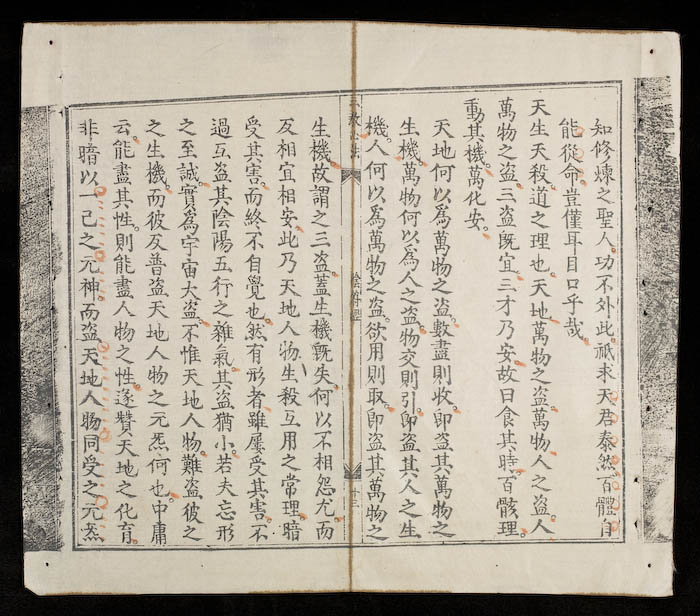 知修煉之聖人。功不外此。祇求天君泰然。百體自
能從命。豈僅耳目口乎哉。
天生天殺。道之理也。天地萬物之盜。萬物人之盜。人
萬物之盜。三盜旣宜。三才乃安。故曰食其時。百骸理。
動其機。萬化安。
天地何以爲萬物之盜。數盡則收。卽盜其萬物之
生機。萬物何以爲人之盜。物交則引。卽盜其人之生
機。人何以爲萬物之盜。欲用則取。卽盜其萬物之
陰符經
十三
生機。故謂之三盜。蓋生機旣失。何以不相怨尤。而
反相宜相安。此乃天地人物。生殺互用之常理。暗
受其害。而終不自覺也。然有形者。雖屢受其害。不
過互盜其陰陽五行之雜氣。其盜猶小。若夫忘形
之至誠。實爲宇宙大盜。不惟天地人物。難盜彼之
之生機。而彼反普盜天地人物之元炁。何也。中庸
云。能盡其性。則能盡人物之性。遂贊天地之化育。
非暗以一己之元神。而盜天地人物同受之元炁